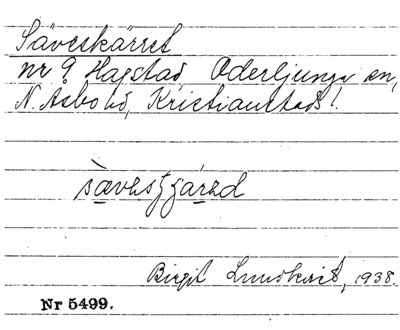 Säveskärret
nr 9 Hagstad Oderljunga sn,
N. Åsbo hd, Kristianstads l.
Birgit Lundkvist, 1938.
Nr 5499.